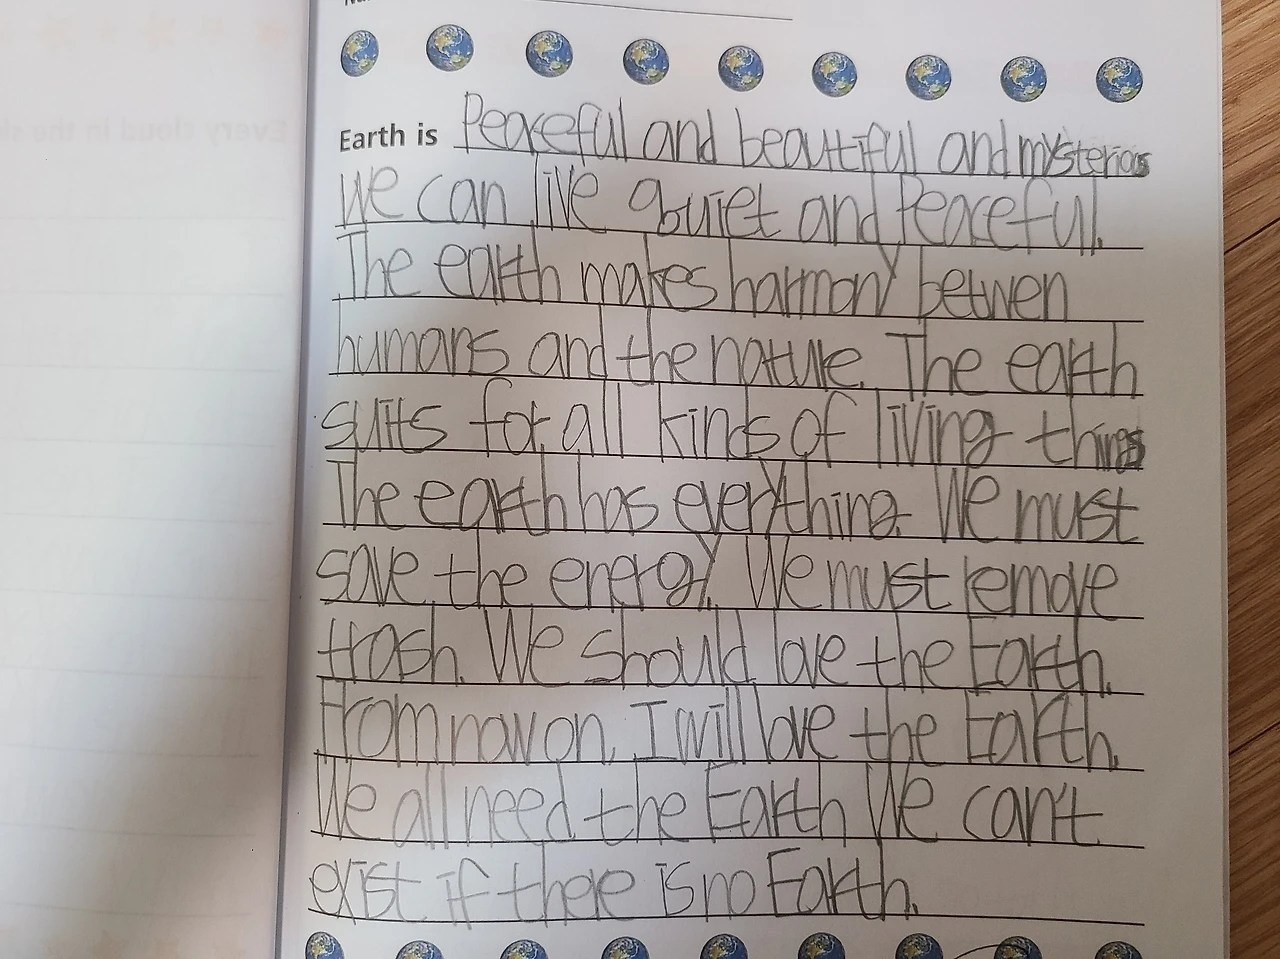 Earth is Peaceful and beautiful and mysterious
We can live quiet and Peaceful.
The earth makes harmony betwen
humans and the nature. The earth
suits for all kinds of living things
The earth has everything. We must
save the energy. We must remove
trash. We should love the Earth.
From now on, I will love the Earth.
We all need the Earth We can't
exist if there is no Earth.